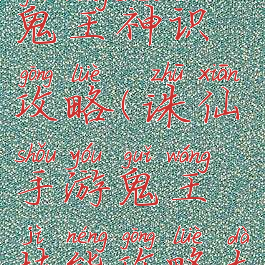 鬼王神识
gōng lüè zhū xiān
攻略(诛仙
shǒu yóu guǐ wáng
手游鬼王
jì néng gōng lüè dà
技能攻略大